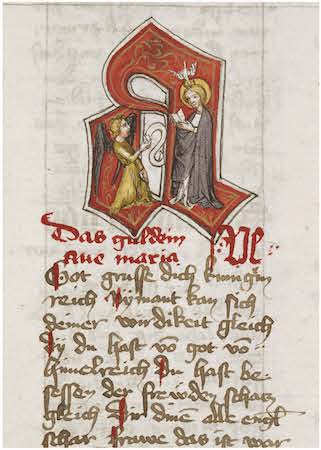 Das guldein VE
Aue maria
Got grusse dich kunigin
reich Nymant kan sich
deiner wirdikeit gleich
Dy du hast vō got vō
himelreich Du hast be
sessen der frewden schatz
gleich Dir dinē alle engl
schar frawe das ist war